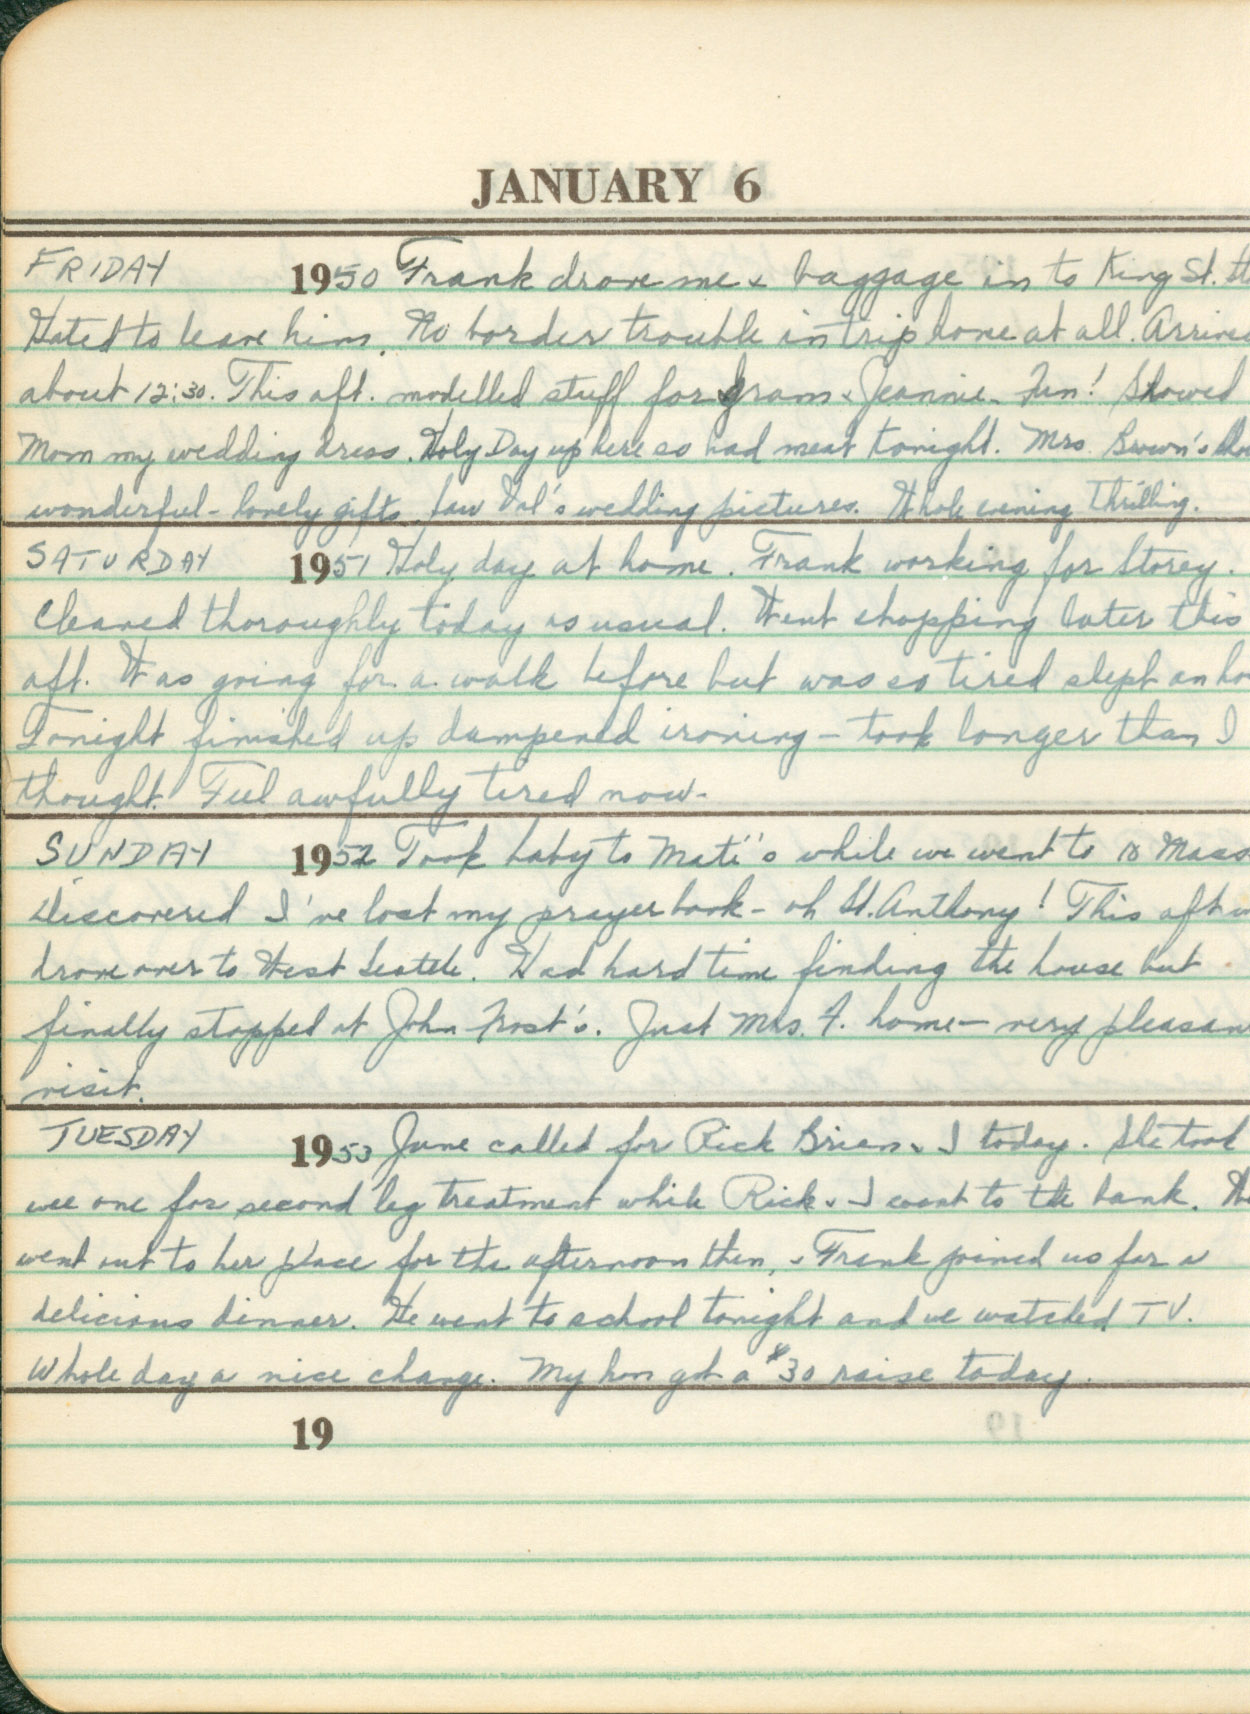 JANUARY 6
FRIDAY 1950 Frank drove me & baggage in to King St.
Hated to leave him. No border trouble in trip home at all. Arrived
about 12:30. This aft. modelled stuff for Gram & Jeannie - Fun! Showed
Mom my wedding dress. Holy Day up here so had meat tonight. Mrs. Brown's
wonderful - lovely gifts. Saw Val's wedding pictures. Whole evening thrilling.
SATURDAY 1951 Holy day at home. Frank working for Storey.
Cleaned thoroughly today as usual. Went shopping later this
aft. Was going for a walk before but was so tired slept an
Tonight finished up dampened ironing - took longer than I
thought. Feel awfully tired now.
SUNDAY 1952 Took baby to Mati's while we went to 10 Mass
Discovered I've lost my prayer book - oh St. Anthony! This aft
drove over to West Seattle. Had hard time finding the house but
finally stopped at John Frost's. Just Mrs. F. home - very pleasant
visit.
TUESDAY 1953 June called for Rick Brian & I today. She took
wee one for second leg treatment while Rick & I went to the bank.
went out to her place for the afternoon then, & Frank joined us for a
delicious dinner. He went to school tonight and we watched TV.
Whole day a nice change. My hon got a $30 raise today.
19